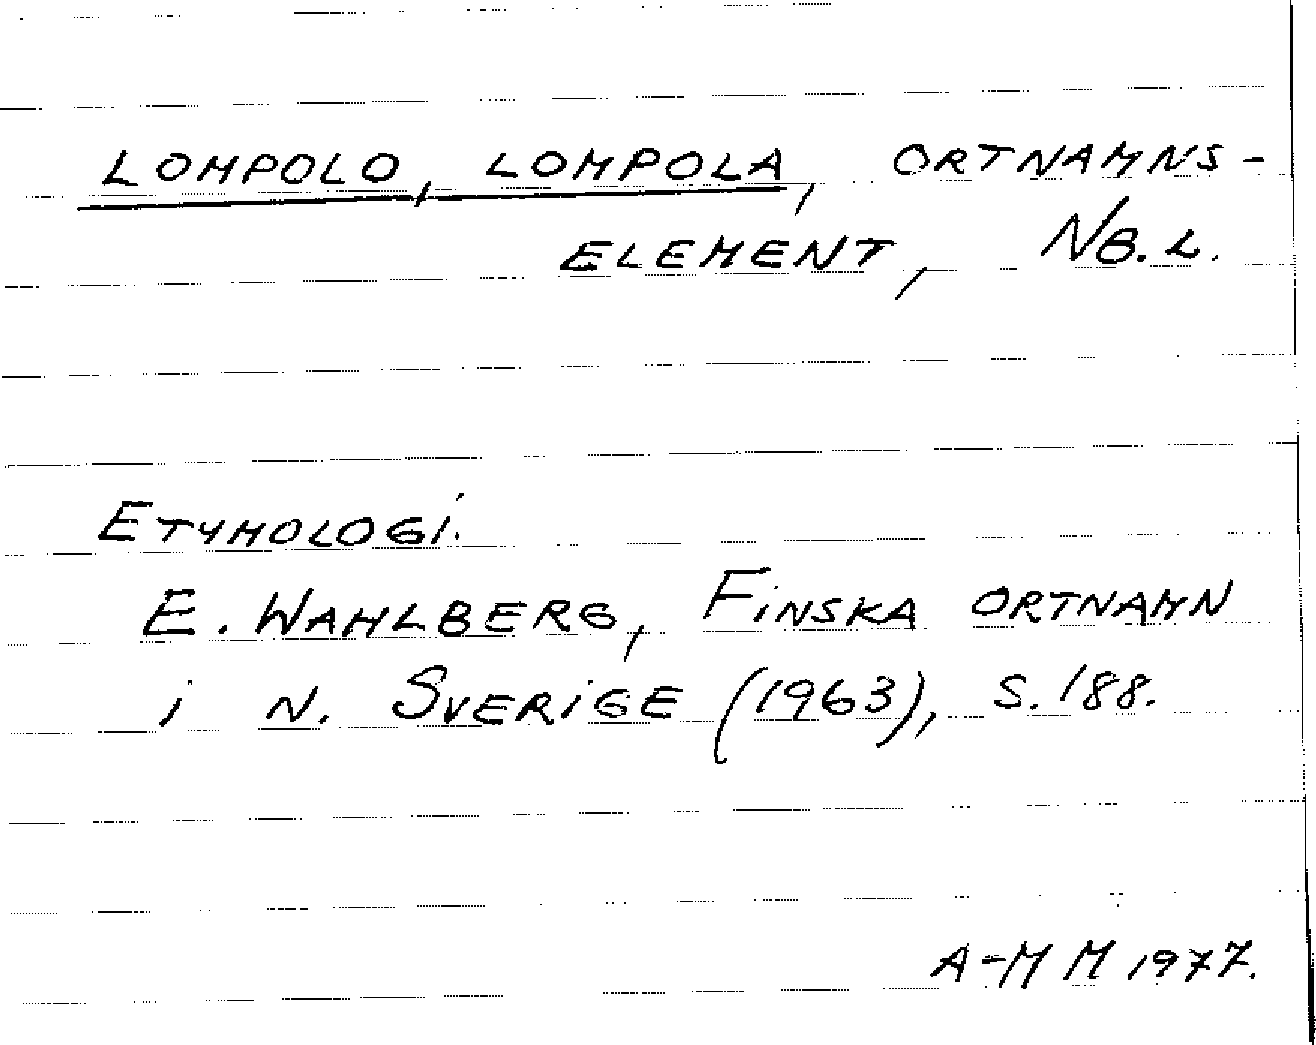 LOMPOLO, LOMPOLA, ORTNAMNS-
ELEMENT, NB.L.
ETYMOLOGI.
E. WAHLBERG, FINSKA ORTNAMN
i N. SVERIGE (1963), S. 188.
A-M M 1977.